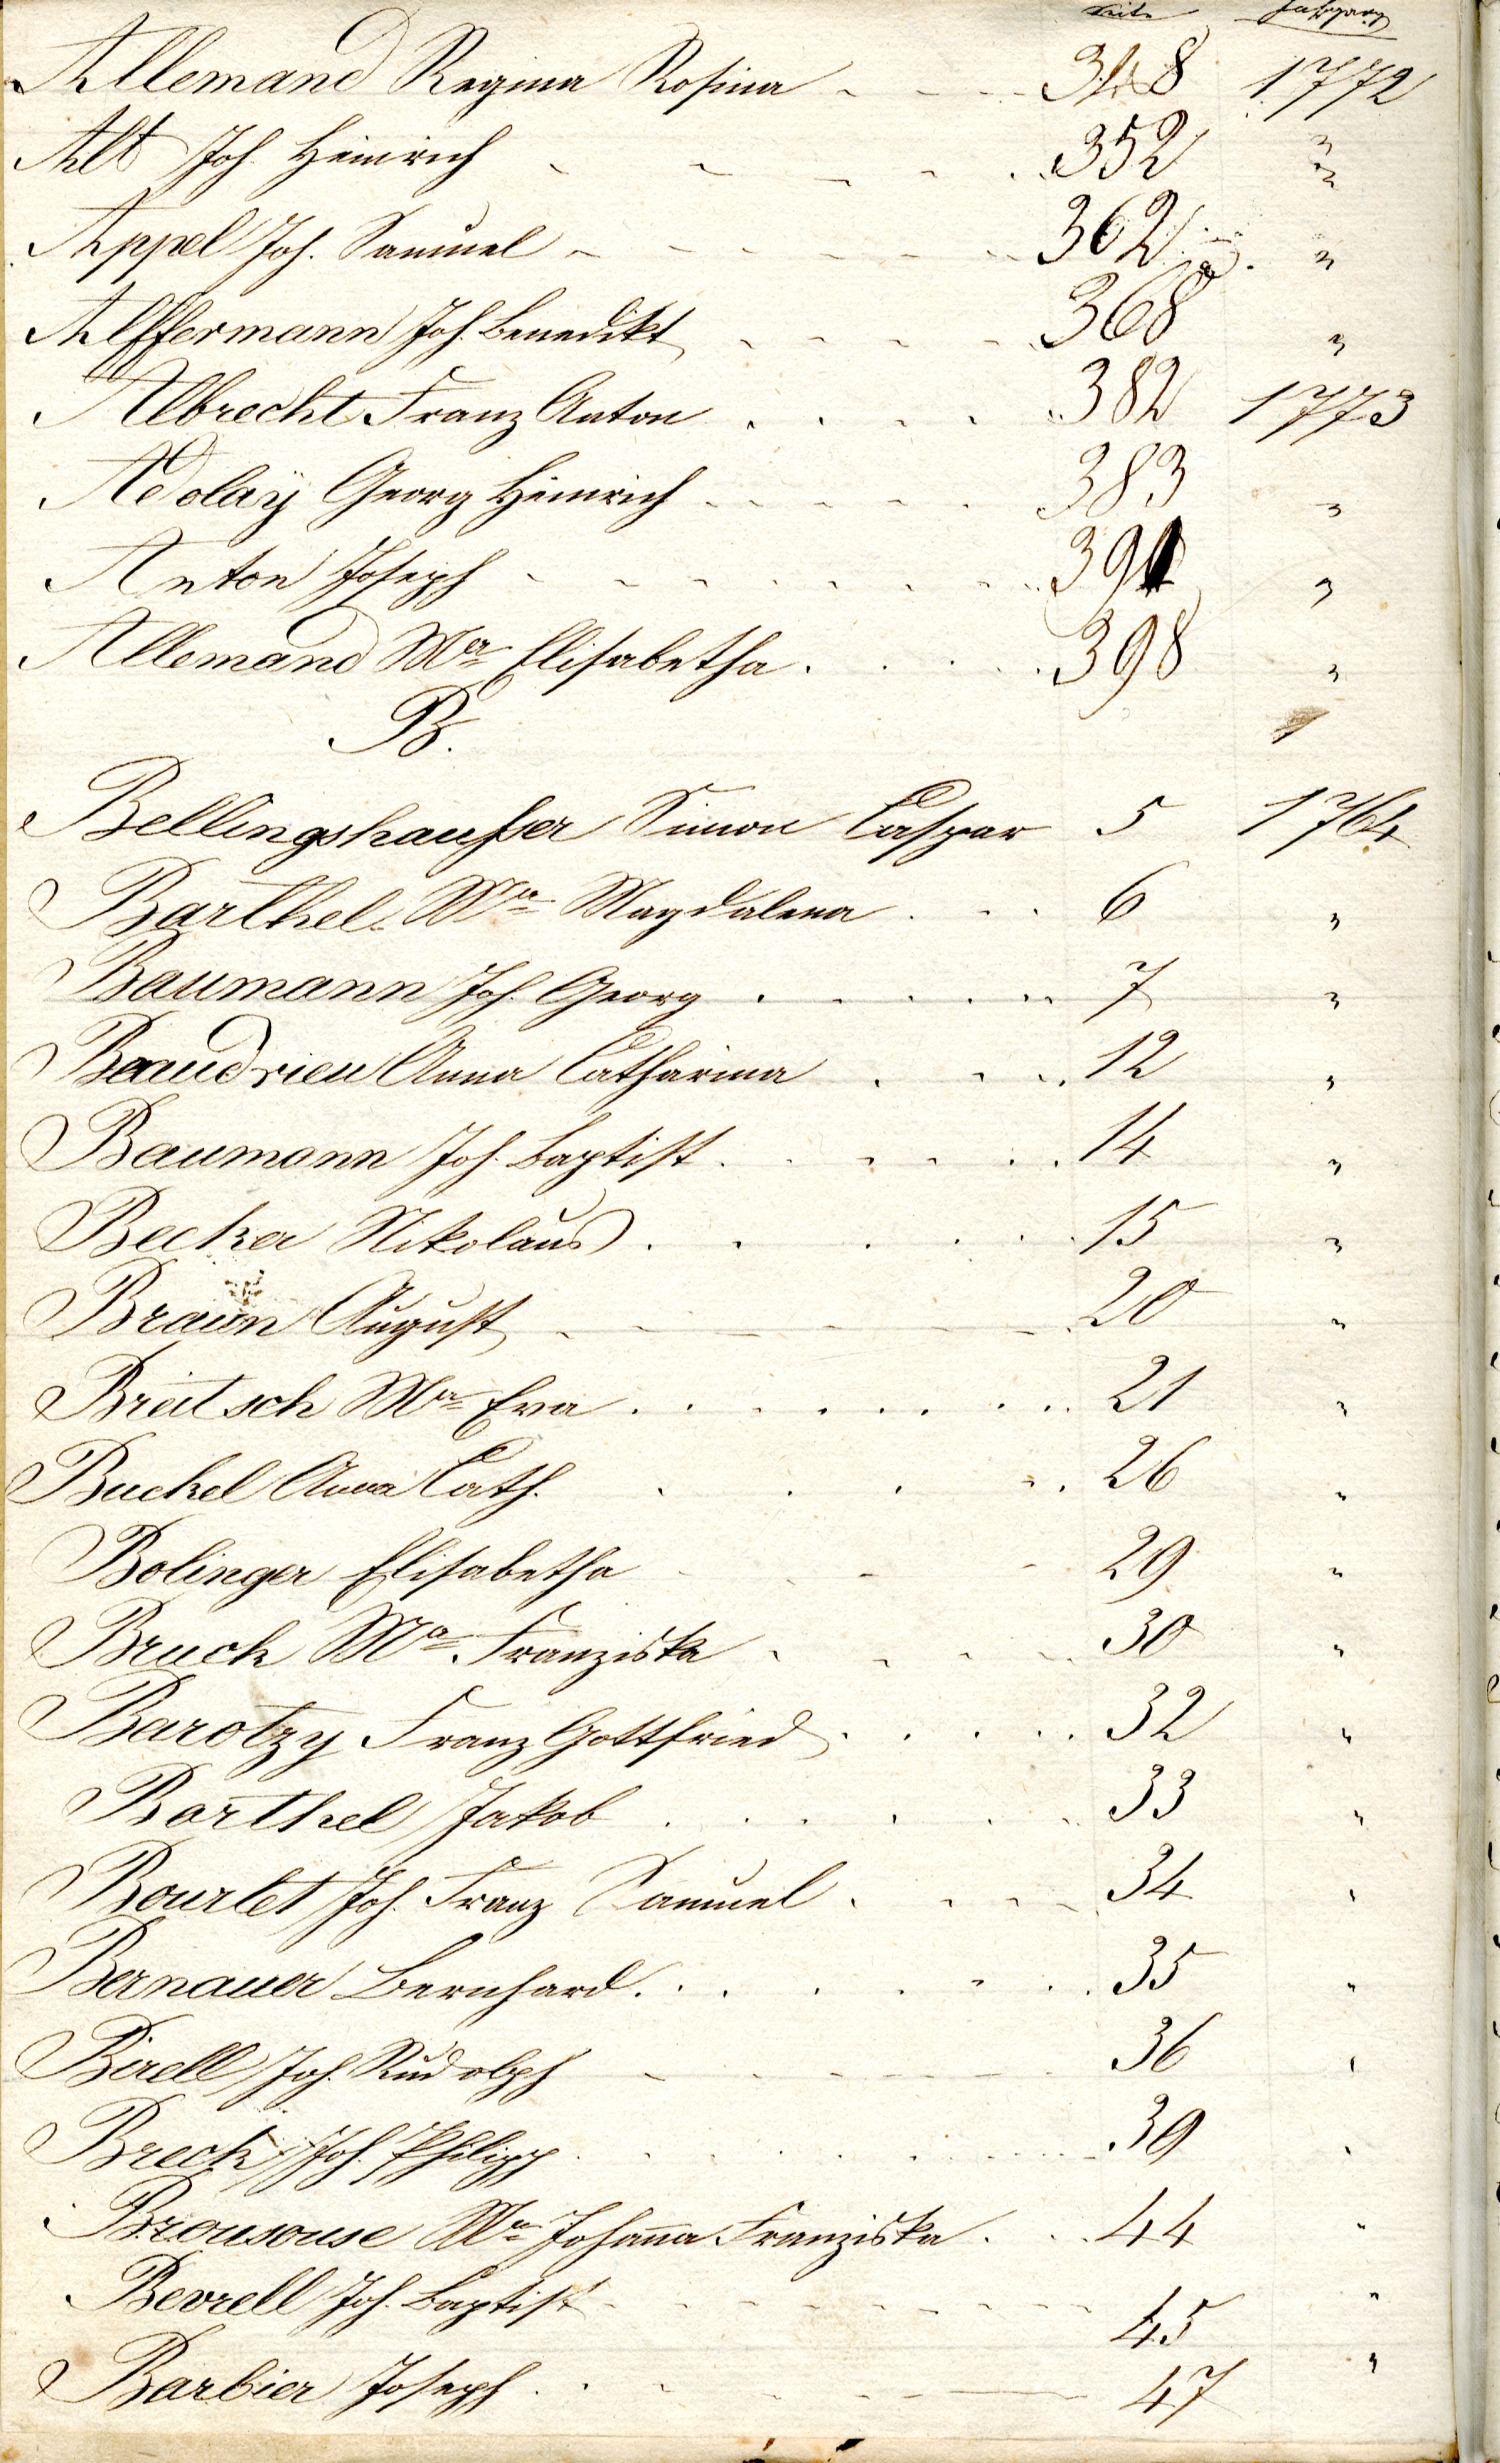 Seite Jahrgang
Allemand Regina Rosina - - - 348 1772
Alt Joh. Heinrich - - - - - 352 "
Appel Joh. Samuel - - - - - 362 "
Alffermann Joh. Benedikt - - - - 368 "
Albrecht Franz Anton . . . . 382 1773
Adolaÿ Georg Heinrich - - - - 383 "
Anton Joseph - - - - - - 391 "
Allemand Ma Elisabetha . . . . 398 "
B.
Bellingshausser Simon Caspar 5 1764
Barthel Ma Magdalena . - . 6 "
Baumann Joh. Georg . . . . . 7 "
Beaudrieu Anna Catharina . . . 12 "
Baumann Joh. Baptist . . . . . 14 "
Becker Nikolaus . . . . . . 15 "
Braun August - - - - - - 20 "
Breitsch Ma Eva . . . . . . . 21 "
Buckel Anna Cath. . . . . 26 "
Bolinger Elisabetha - - - 29 "
Bruch Ma Franziska - - - - 30 "
Barotzy Franz Gottfried . . . . 32 "
Barthel Jakob . . . . . . 33 "
Bourlet Joh. Franz Samuel . . . 34 "
Bernauer Bernhard . . . . . . 35 "
Birell Joh. Rudolph - - - - - 36 "
Breck Joh. Philipp . . . . . . 39 "
Brousouse Ma Johanna Franziska . . 44 "
Bevrell Joh. Baptist - - - - - - 45 "
Barbier Joseph . . - - - - 47 "